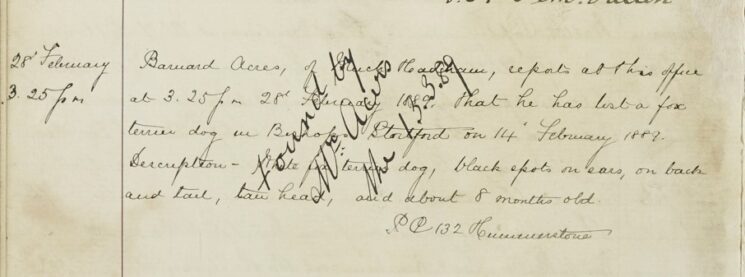 28' February
3.25 pm
Barnard Acres, of Much Hadham, reports at this office
at 3.25 pm 28' February 1889. That he has lost a fox
terrier dog in Bishops Stortford on 14' February 1889.
Description - White fox terrier dog, black spots on ears, on back
and tail, tan head, and about 8 months old.
P.C 132 Hummerstone
Found by
Mr: Acres